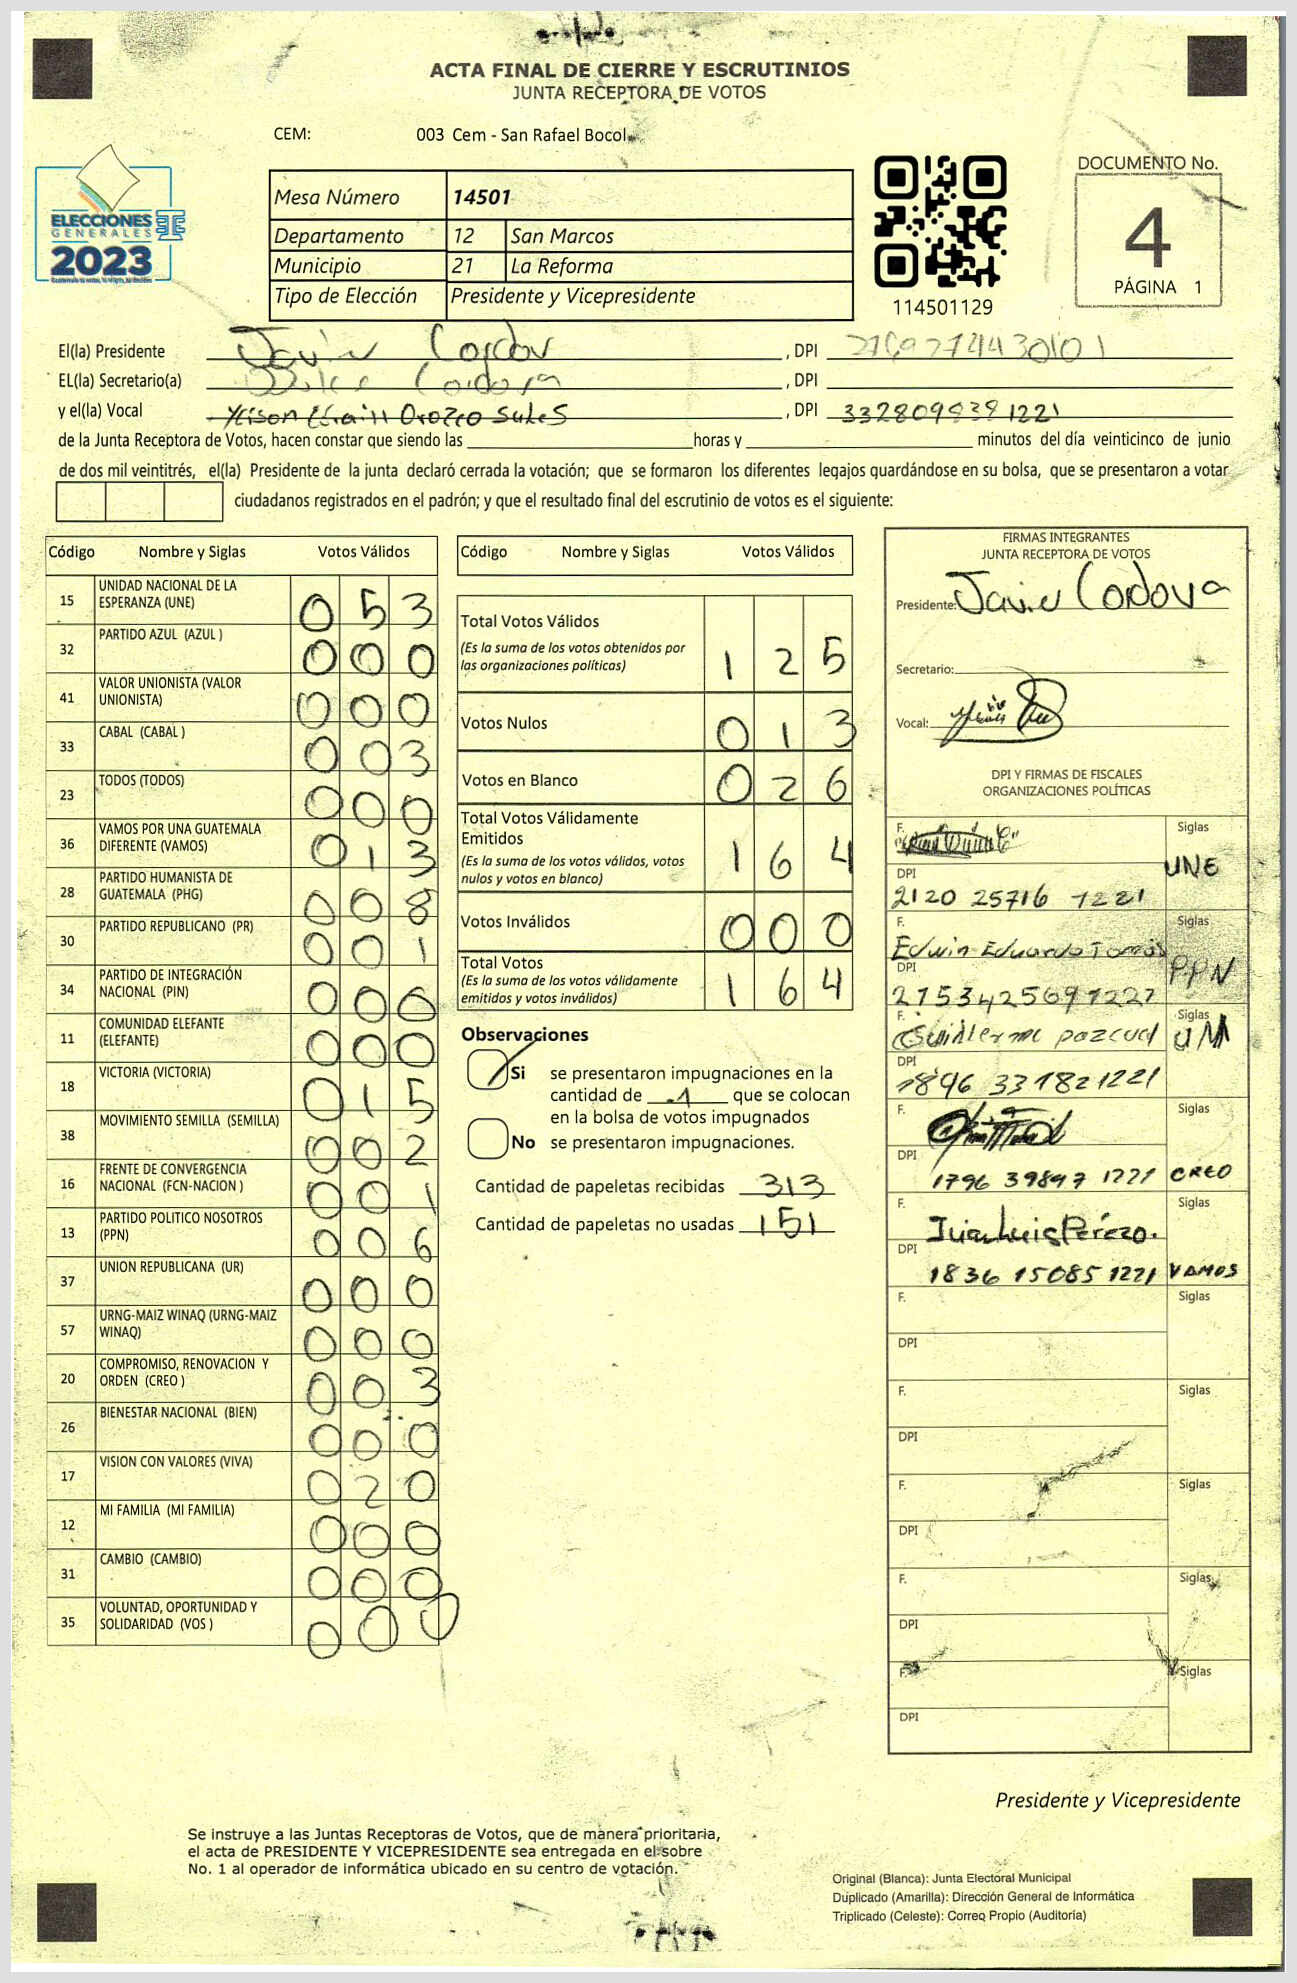 ACTA FINAL DE CIERRE Y ESCRUTINIOS
JUNTA RECEPTORA DE VOTOS
CEM: 003 Cem - San Rafael Bocol
ELECCIONES
GENERALES
2023
Mesa Número 14501
Departamento 12 San Marcos
Municipio 21 La Reforma
Tipo de Elección Presidente y Vicepresidente
114501129
DOCUMENTO No.
4
PÁGINA 1
El(la) Presidente Javier Cordov , DPI
EL(la) Secretario(a) Cordova , DPI
y el(la) Vocal Orozco , DPI
de la Junta Receptora de Votos, hacen constar que siendo las horas y minutos del día veinticinco de junio
de dos mil veintitrés, el(la) Presidente de la junta declaró cerrada la votación; que se formaron los diferentes legajos guardándose en su bolsa, que se presentaron a votar
ciudadanos registrados en el padrón; y que el resultado final del escrutinio de votos es el siguiente:
Código Nombre y Siglas Votos Válidos
15 UNIDAD NACIONAL DE LA ESPERANZA (UNE) 053
32 PARTIDO AZUL (AZUL ) 000
41 VALOR UNIONISTA (VALOR UNIONISTA) 000
33 CABAL (CABAL ) 003
23 TODOS (TODOS) 000
36 VAMOS POR UNA GUATEMALA DIFERENTE (VAMOS) 013
28 PARTIDO HUMANISTA DE GUATEMALA (PHG) 008
30 PARTIDO REPUBLICANO (PR) 001
34 PARTIDO DE INTEGRACIÓN NACIONAL (PIN) 00
11 COMUNIDAD ELEFANTE (ELEFANTE) 000
18 VICTORIA (VICTORIA) 015
38 MOVIMIENTO SEMILLA (SEMILLA) 002
16 FRENTE DE CONVERGENCIA NACIONAL (FCN-NACION ) 001
13 PARTIDO POLITICO NOSOTROS (PPN) 006
37 UNION REPUBLICANA (UR) 000
57 URNG-MAIZ WINAQ (URNG-MAIZ WINAQ) 000
20 COMPROMISO, RENOVACION Y ORDEN (CREO ) 003
26 BIENESTAR NACIONAL (BIEN) 000
17 VISION CON VALORES (VIVA) 020
12 MI FAMILIA (MI FAMILIA) 000
31 CAMBIO (CAMBIO) 000
35 VOLUNTAD, OPORTUNIDAD Y SOLIDARIDAD (VOS ) 000
Código Nombre y Siglas Votos Válidos
Total Votos Válidos
(Es la suma de los votos obtenidos por
las organizaciones políticas) 125
Votos Nulos 013
Votos en Blanco 026
Total Votos Válidamente
Emitidos
(Es la suma de los votos válidos, votos
nulos y votos en blanco) 164
Votos Inválidos 000
Total Votos
(Es la suma de los votos válidamente
emitidos y votos inválidos) 164
Observaciones
Si se presentaron impugnaciones en la
cantidad de 1 que se colocan
en la bolsa de votos impugnados
No se presentaron impugnaciones.
Cantidad de papeletas recibidas 313
Cantidad de papeletas no usadas 151
FIRMAS INTEGRANTES
JUNTA RECEPTORA DE VOTOS
Presidente: Javier Cordova
Secretario:
Vocal:
DPI Y FIRMAS DE FISCALES
ORGANIZACIONES POLÍTICAS
F. Siglas
UNE
DPI
2120 25716 1221
F. Siglas
Edwin Eduardo Tomás PPN
DPI
F. Siglas
UM
DPI
1896 331821221
F. Siglas
DPI
1796 39897 1221 CREO
F. Siglas
Juan Luis
DPI
1836 15085 1221 VAMOS
F. Siglas
DPI
F. Siglas
DPI
F. Siglas
DPI
F. Siglas
DPI
F. Siglas
DPI
Presidente y Vicepresidente
Se instruye a las Juntas Receptoras de Votos, que de manera prioritaria,
el acta de PRESIDENTE Y VICEPRESIDENTE sea entregada en el sobre
No. 1 al operador de informática ubicado en su centro de votación.
Original (Blanca): Junta Electoral Municipal
Duplicado (Amarilla): Dirección General de Informática
Triplicado (Celeste): Correo Propio (Auditoria)